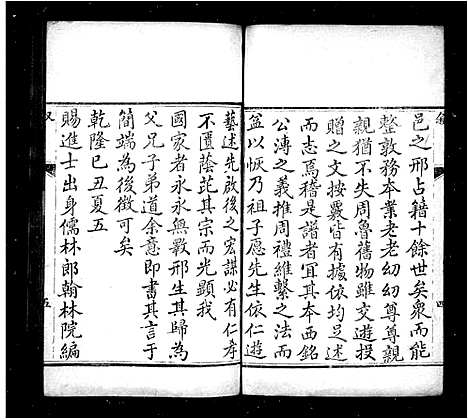 邑之邢占籍十餘世矣衆而能
整敦務本業老老幼幼尊尊親
親猶不失周魯舊物雖交遊投
贈之文按覈皆有據依均足述
而志焉稽是譜者宜其本西銘
公溥之義推周禮維繫之法而
益以恢乃祖子愿先生依仁遊
藝述先啟後之宏謀必有仁孝
不匱蔭芘其宗而光顯我
國家者永永無斁邢生其歸為
父兄子弟道余意即書其言于
簡端為後徵可矣
乾隆己丑夏五
賜進士出身儒林郎翰林院編
四
五